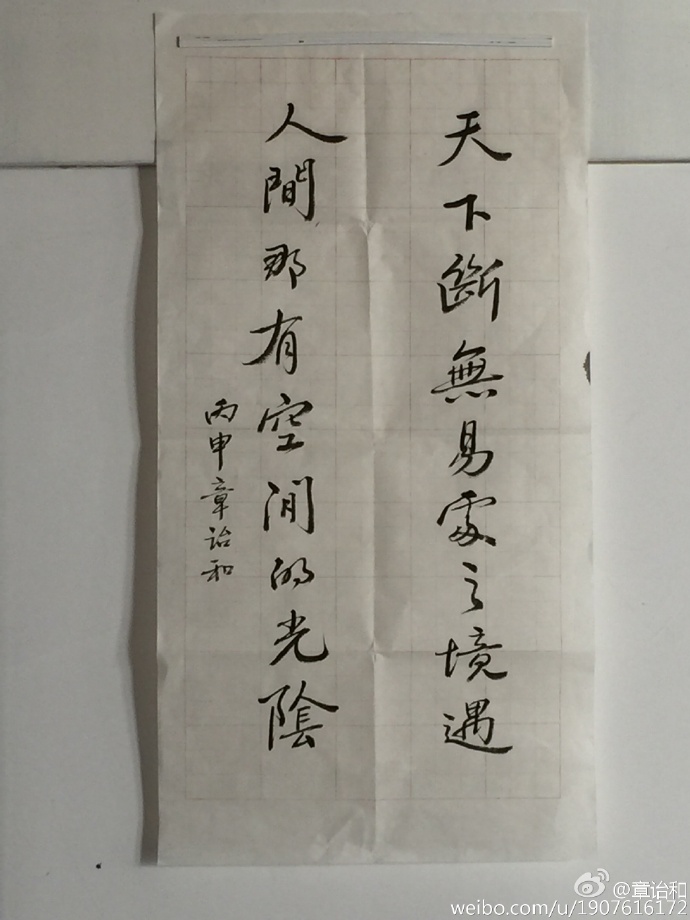 天下斷無易處之境遇
人間那有空閒的光陰
丙申章诒和
@章诒和
weibo.com/u/1907616172